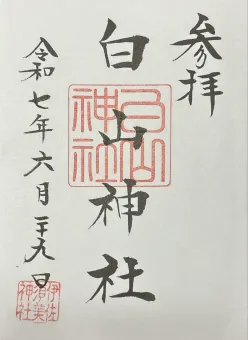 参拝
白山神社
白山
神社
令和七年六月二十九日
伊佐
須美
神社